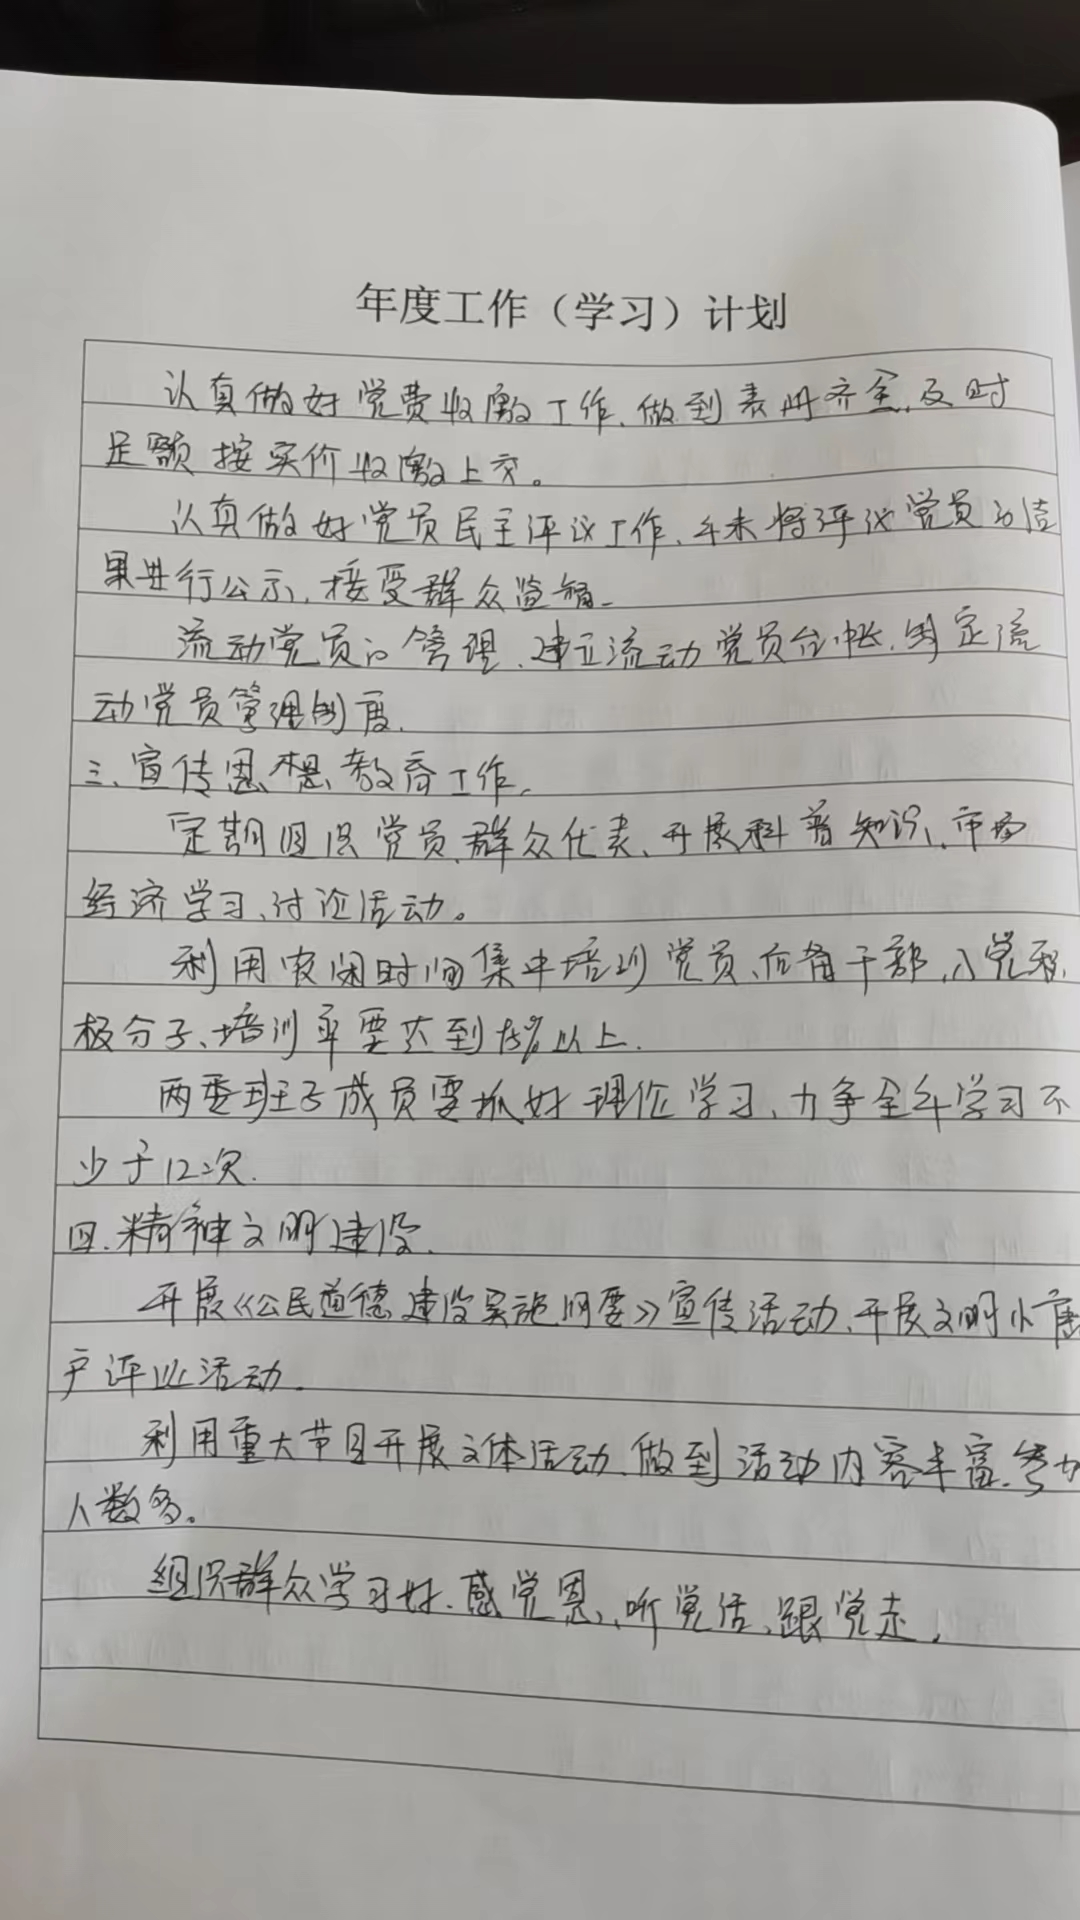 年度工作（学习）计划
认真做好党费收缴工作、做到表册齐全、及时
足额按实价收缴上交。
认真做好党员民主评议工作、年末将评议党员的结
果进行公示、接受群众监督。
流动党员的管理、建立流动党员台帐、制定流
动党员管理制度、
三、宣传思想教育工作、
定期组织党员、群众代表、开展科普知识、市场
经济学习、讨论活动。
利用农闲时间集中培训党员、后备干部、入党积
极分子、培训率要达到 以上.
两委班子成员要抓好理论学习、力争全年学习不
少于12次.
四.精神文明建设.
开展《公民道德建设实施纲要》宣传活动、开展文明小康
户评比活动.
利用重大节目开展文体活动、做到活动内容丰富、参加
人数多。
组织群众学习好、感党恩、听党话、跟党走.